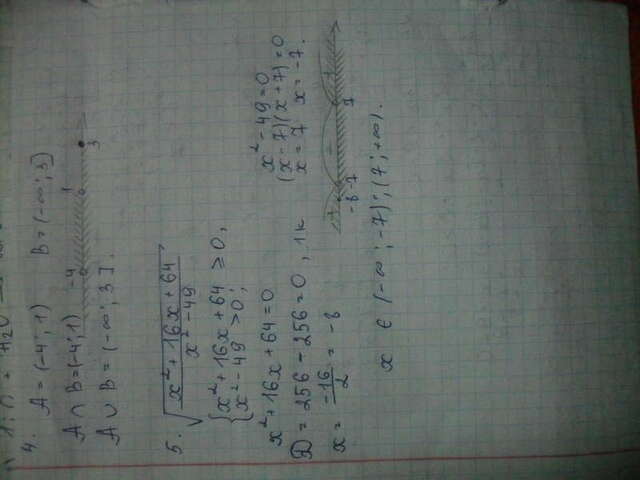 4. A = (-4; 1) B = (-∞; 3]
-4 1 3
A ∩ B = (-4; 1)
A ∪ B = (-∞; 3].
5. √((x² + 16x + 64)/(x² - 49))
{ x² + 16x + 64 ≥ 0,
{ x² - 49 > 0;
x² + 16x + 64 = 0
D = 256 - 256 = 0, 1к
x = -16/2 = -8
x² - 49 = 0
(x - 7)(x + 7) = 0
x = 7 x = -7.
-8 -7 7
x ∈ (-∞; -7); (7; +∞).